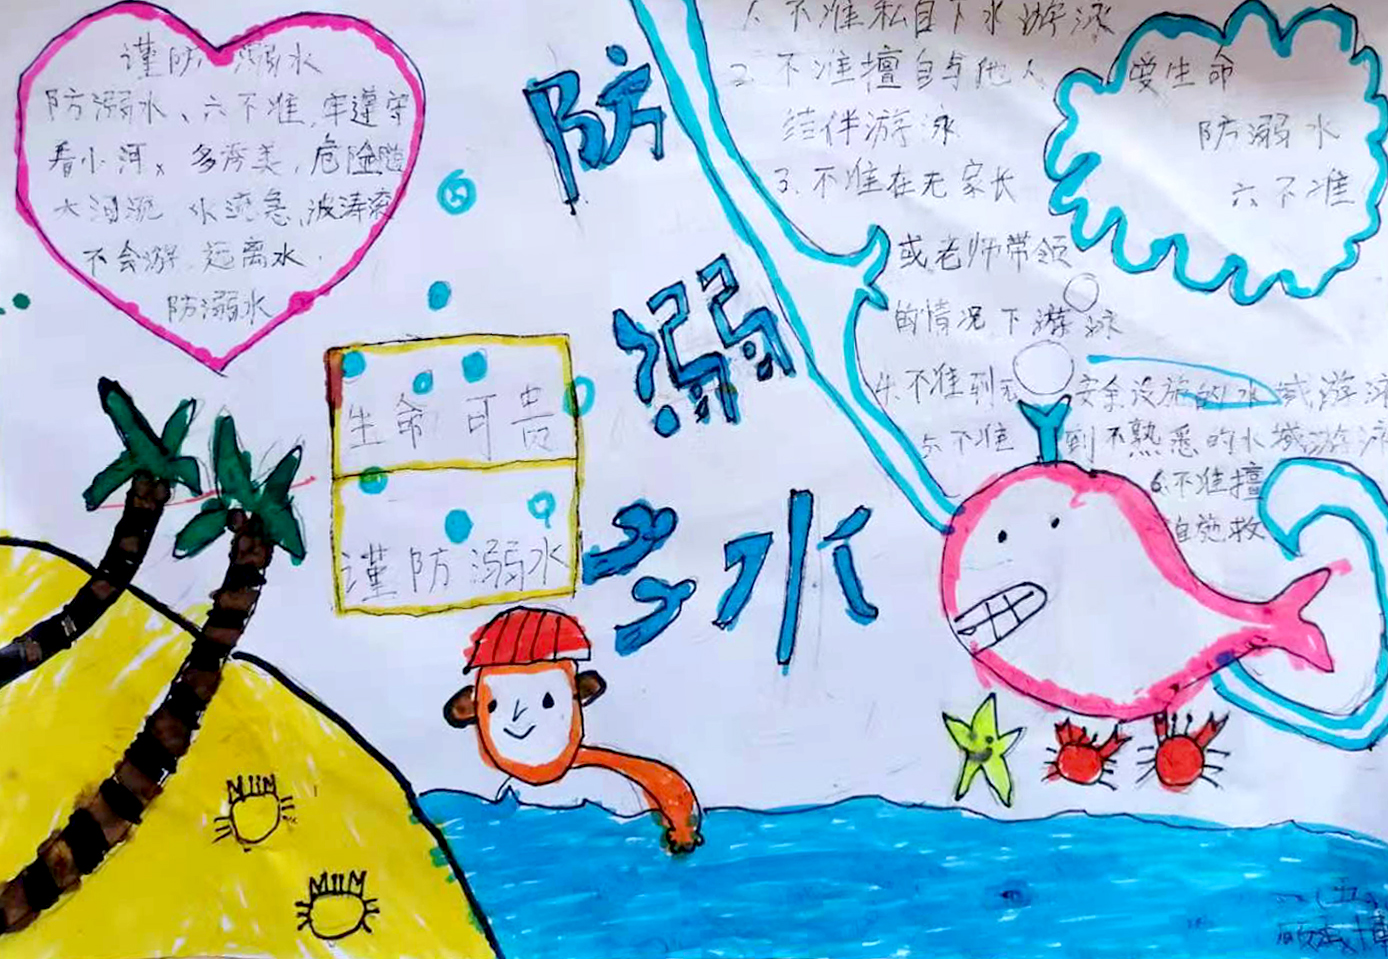 谨防溺水
防溺水、六不准,牢遵守
看小河、多秀美,危险随
大河流 水流急,波涛滚
不会游 远离水.
防溺水
防
溺
水
生命可贵
谨防溺水
1. 不准私自下水游泳
2. 不准擅自与他人
结伴游泳
3. 不准在无家长
或老师带领
的情况下游泳
4. 不准到无安全设施的水域游泳
5. 不准到不熟悉的水域游泳
6. 不准擅
自施救
爱生命
防溺水
六不准